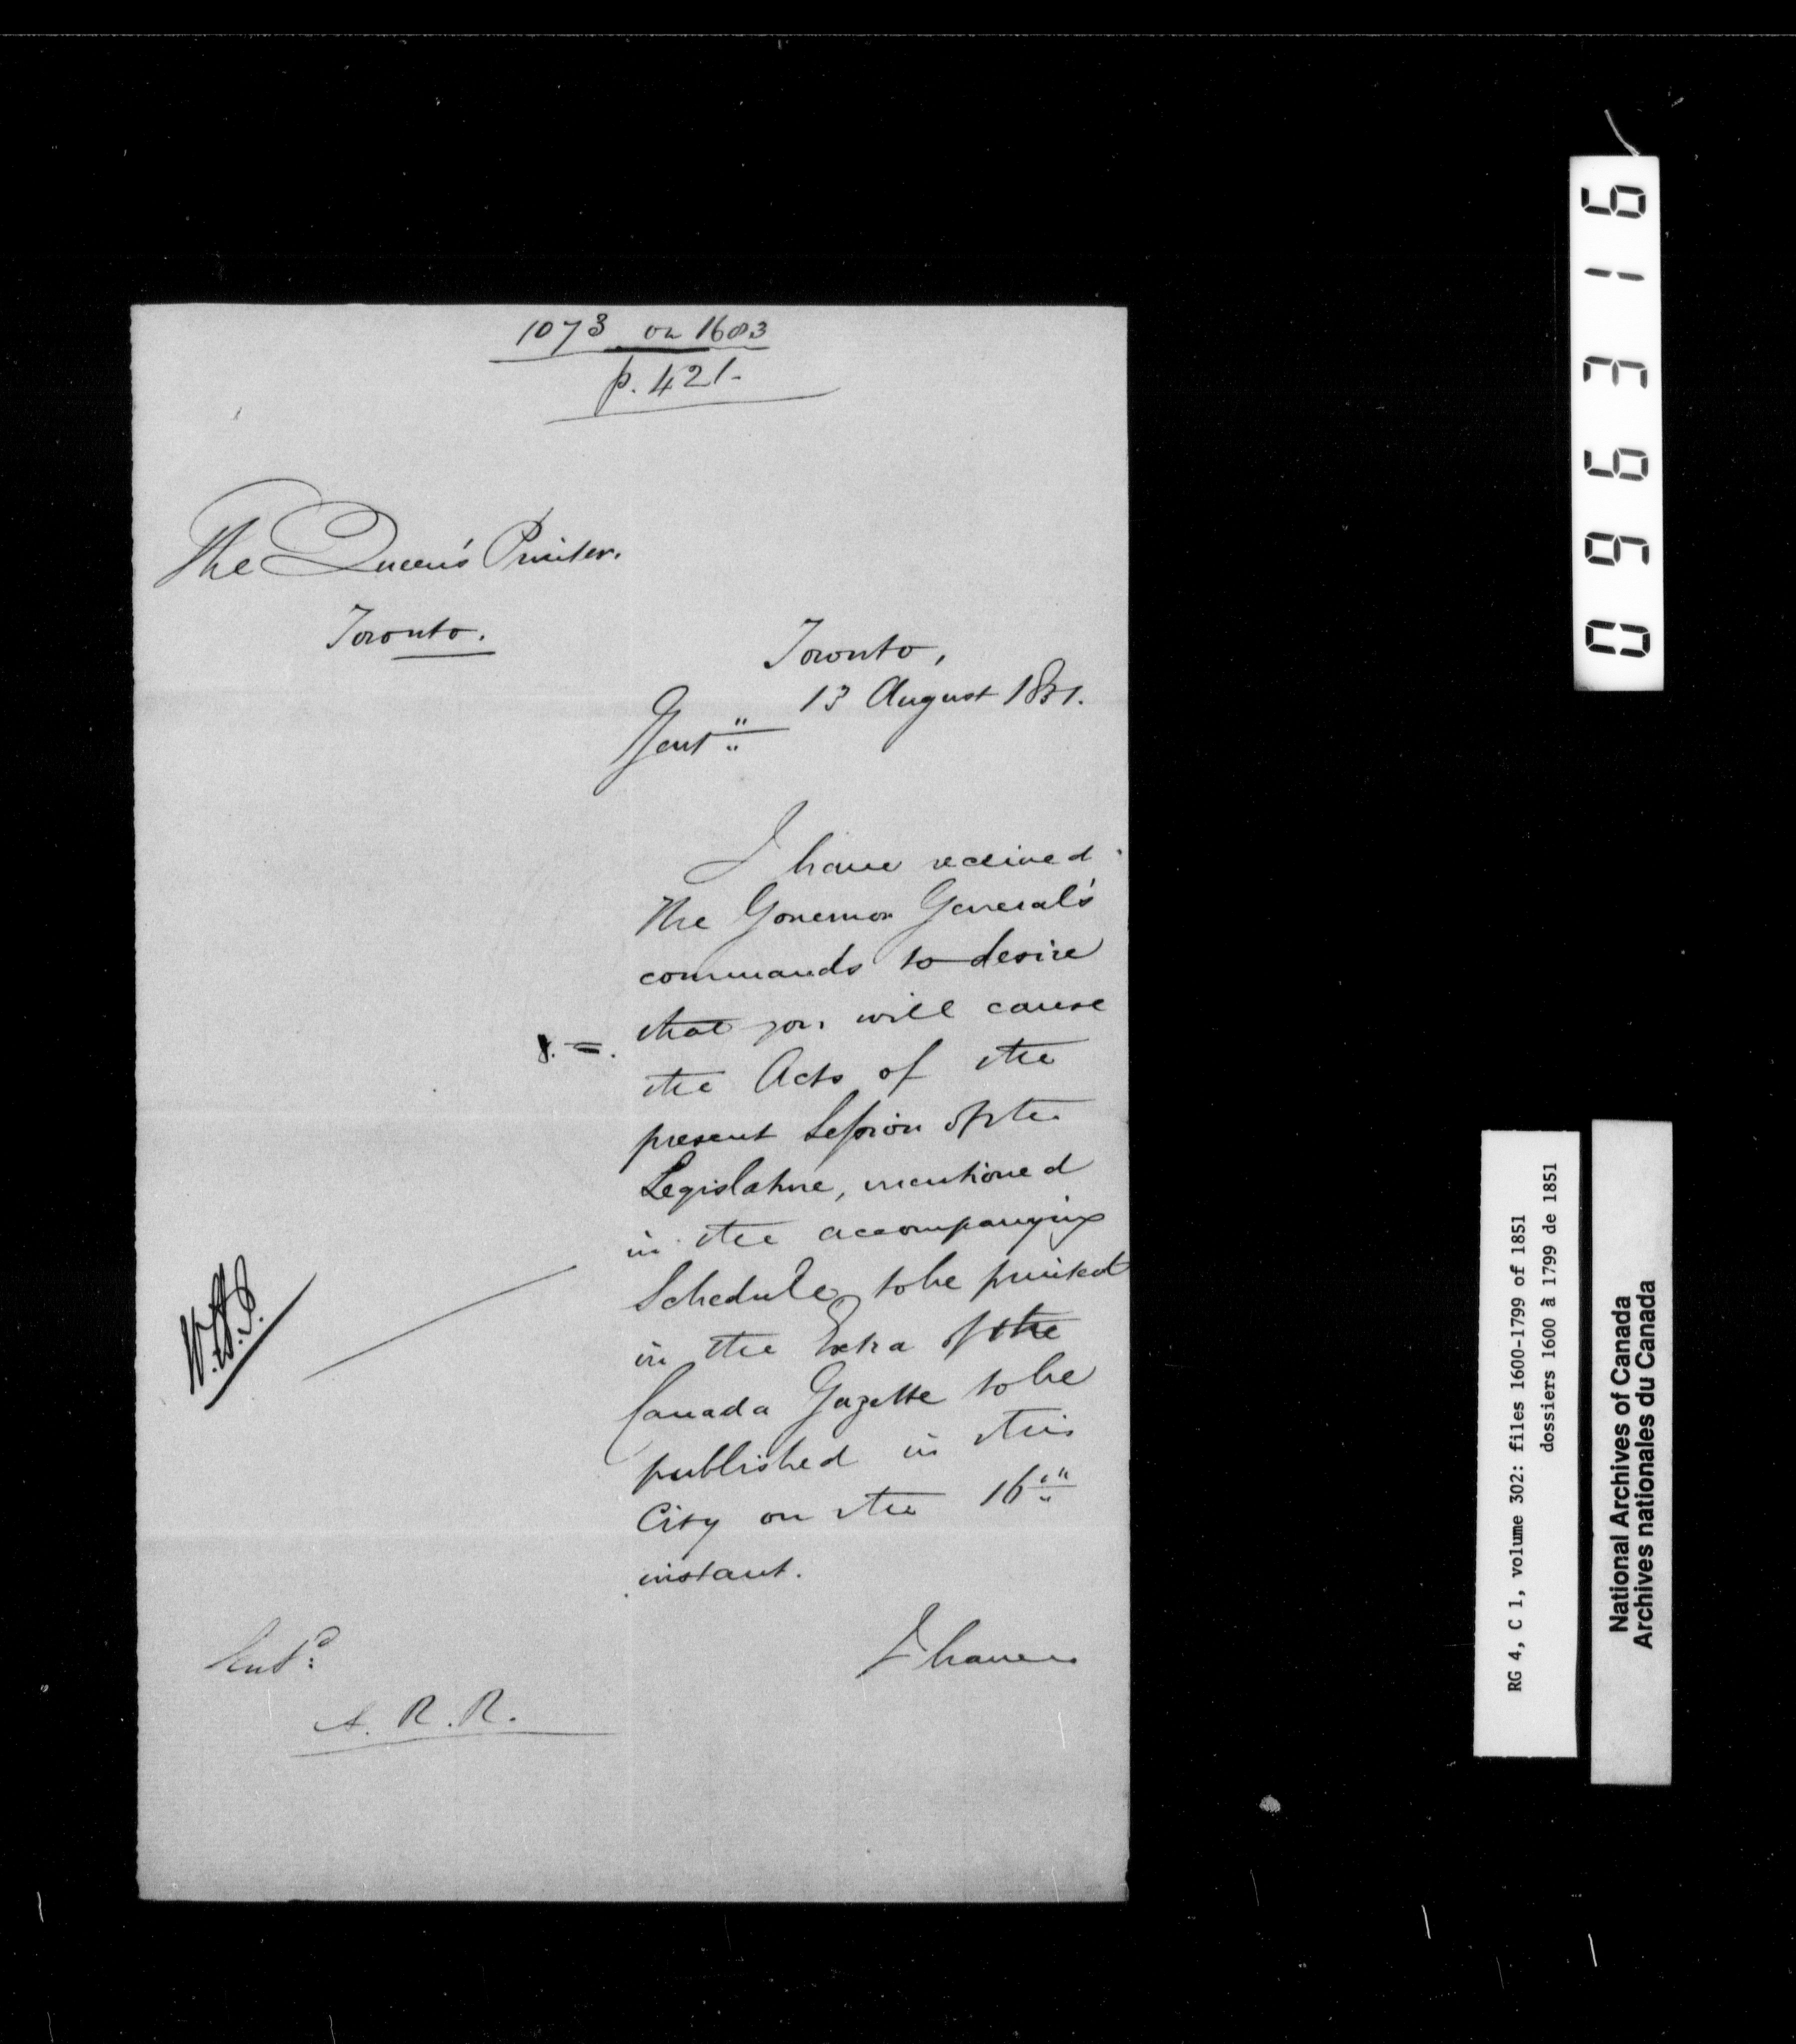 1073 on 1683
p. 421.
The Queen's Printer.
Toronto.
Toronto,
13 August 1851.
Gent:"
I have received
the Governor General's
commands to desire
that you will cause
the Acts of the
present Session of the
Legislature, mentioned
in the accompanying
Schedule to be printed
in the Extra of the
Canada Gazette to be
published in this
City on the 16th
instant.
I have &c
Entd:
A. R. R.
096316
RG 4, C 1, volume 302: files 1600-1799 of 1851
dossiers 1600 à 1799 de 1851
National Archives of Canada
Archives nationales du Canada